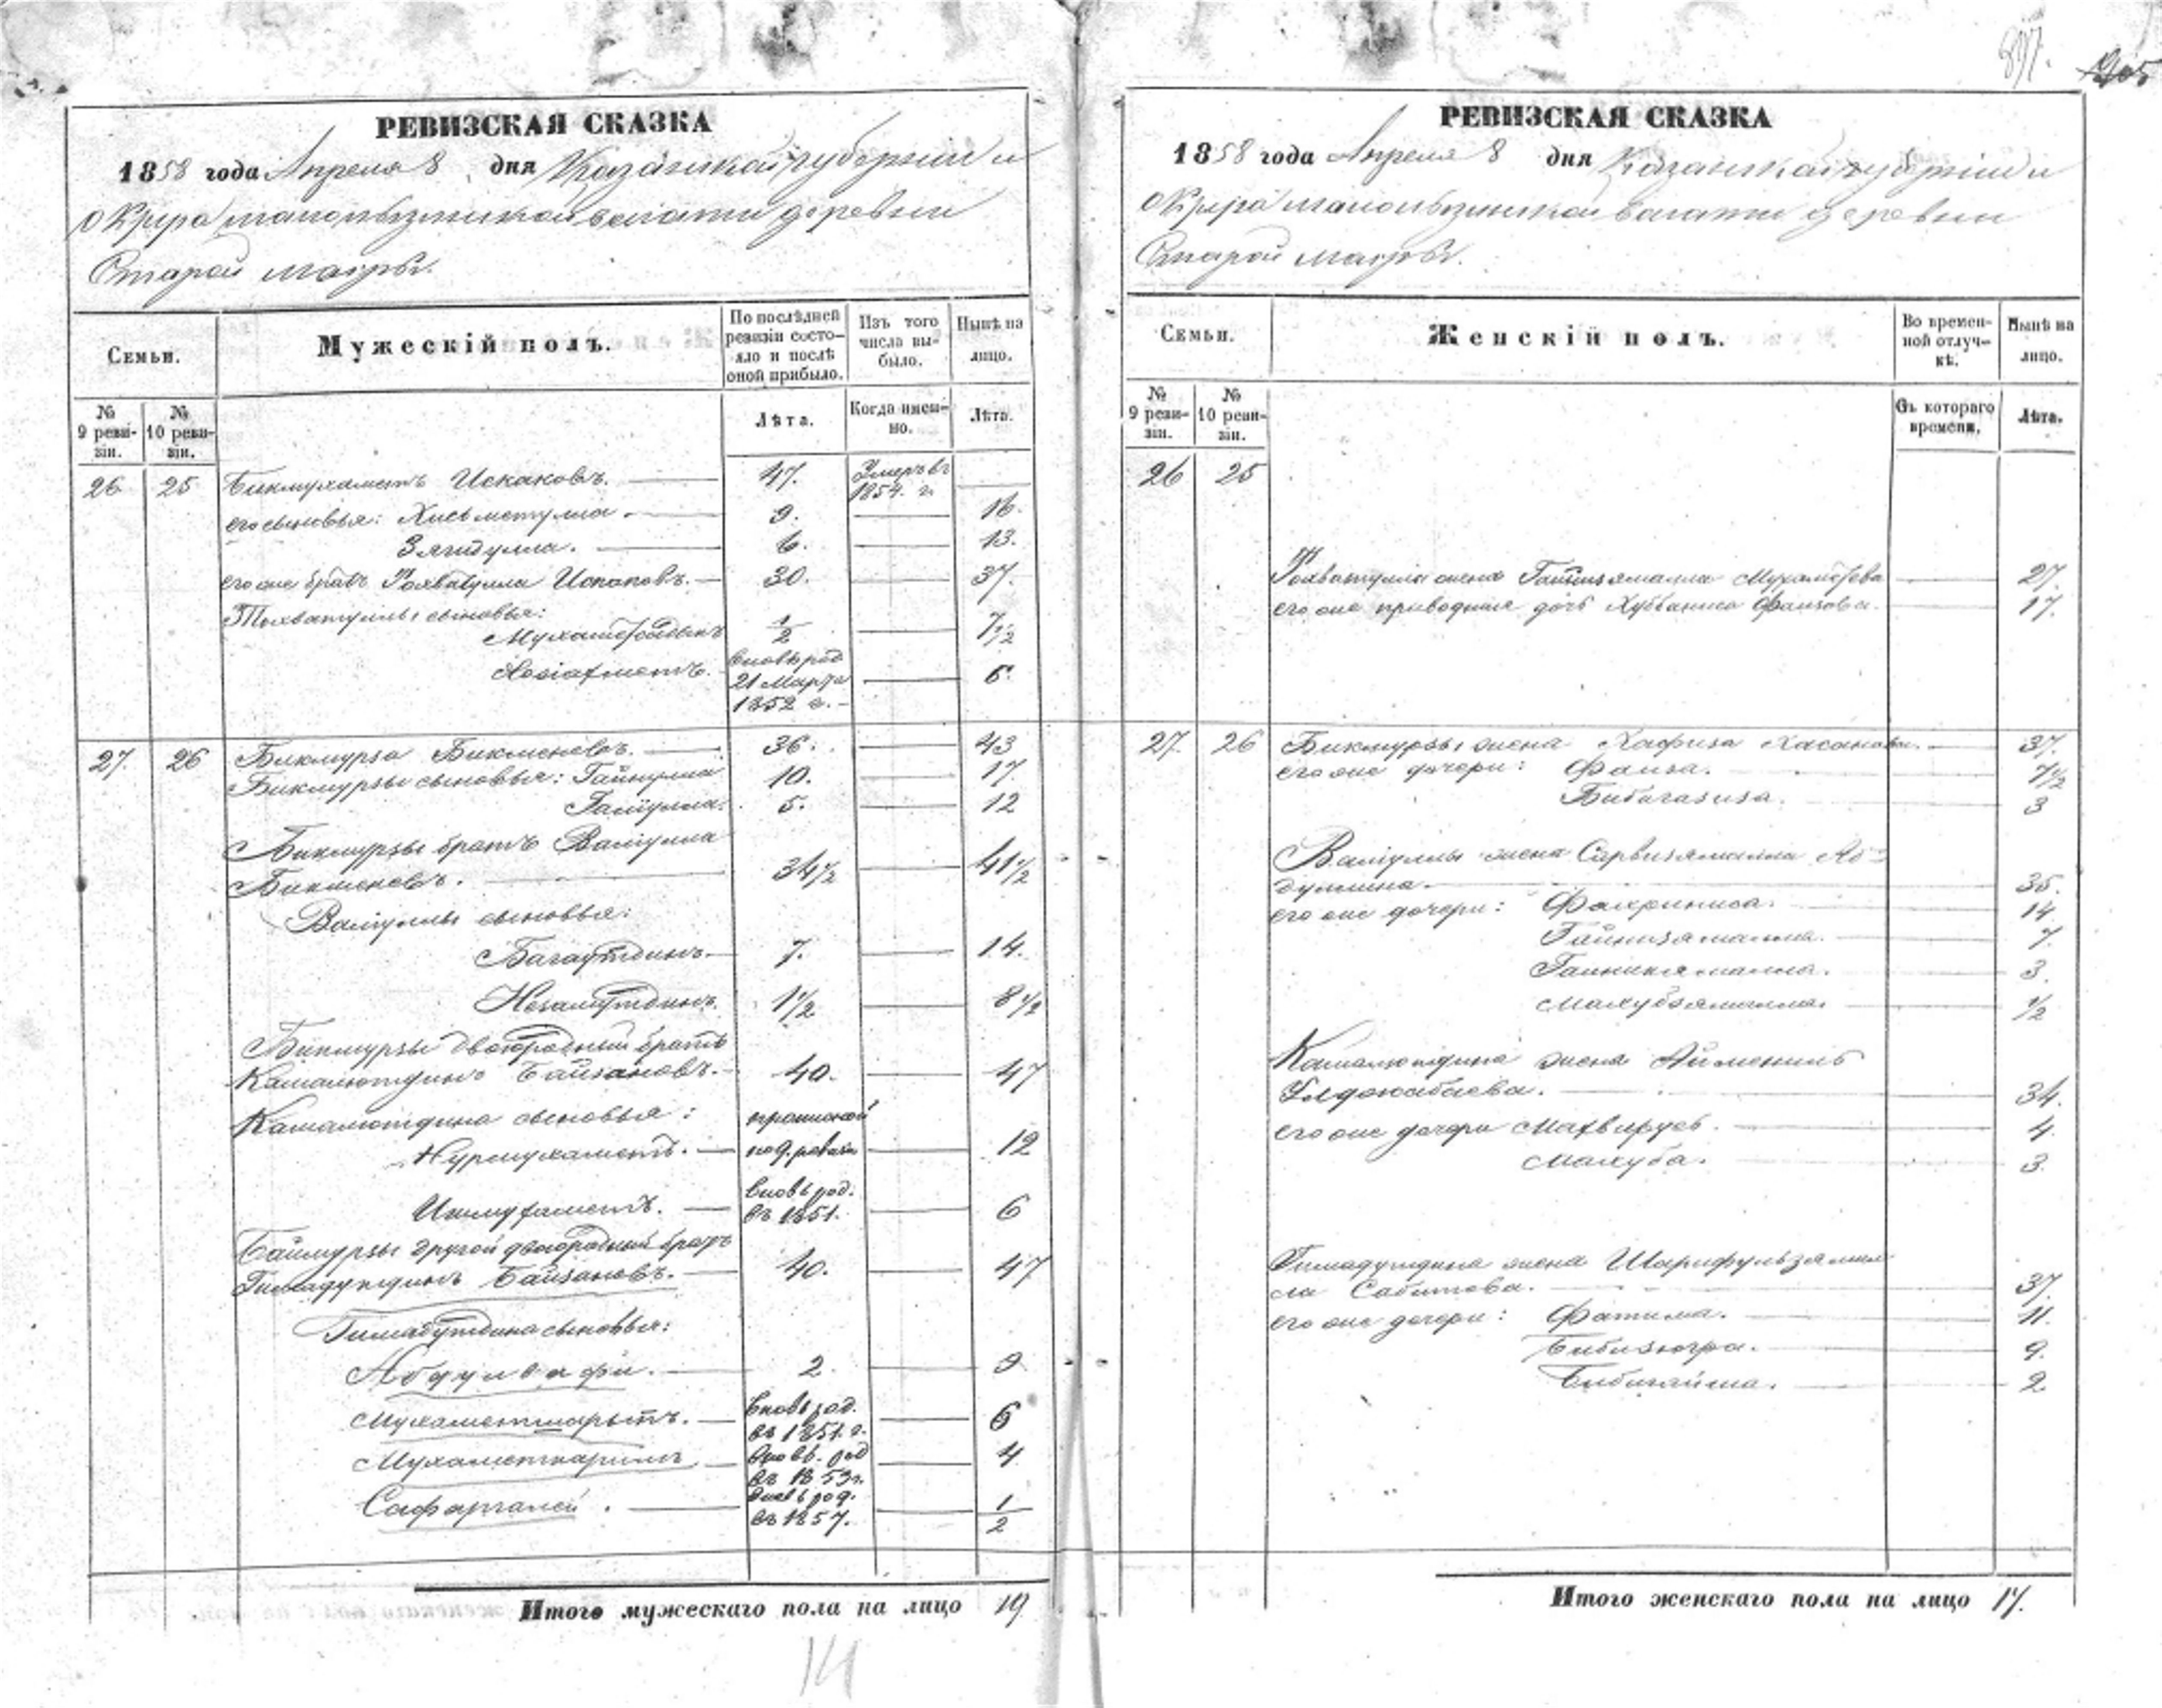 897.
905
РЕВИЗСКАЯ СКАЗКА
1858 года Апреля 8 дня Казанской губернии и
округа волости деревни
Старой
Семьи.
Мужескій полъ.
По послѣдней ревизіи состояло и послѣ оной прибыло.
Изъ того числа выбыло.
Нынѣ на лицо.
№ 9 ревизіи.
№ 10 ревизіи.
Лѣта.
Когда именно.
Лѣта.
26 25 Бикмухаметъ Искаковъ. 47. Умеръ въ 1854. г.
его сыновья: Хисьметулла. 9. 16.
Зягидулла. 6. 13.
его же братъ Тохватулла Искаковъ. 30. 37.
Тохватуллы сыновья:
1/2 7 1/2
вновь род. 21 Марта 1852 г. 6.
27. 26 Бикмурза Бикменевъ. 36. 43
Бикмурзы сыновья: Гайнулла 10. 17.
Галиулла. 5. 12
Бикмурзы братъ Валіулла
Бикменевъ. 34 1/2 41 1/2
Валіуллы сыновья:
Багаутдинъ 7. 14.
Незамутдинъ. 1 1/2 8 1/2
Бикмурзы двоюродный братъ
Камалютдинъ Байзановъ. 40. 47
Камалютдина сыновья:
Нурмухаметъ. прописной по 9. ревизіи 12
Ишмухаметъ. вновь род. въ 1851. 6
Баймурзы другой двоюродный братъ
Гимадутдинъ Байзановъ. 40. 47
Гимадутдина сыновья:
Абдулвафи. 2. 9
Мухаметшарыпъ. вновь род. въ 1851. г. 6
Мухаметкаримъ вновь. род въ 1853 г. 4
Сафаргалей. вновь род. въ 1857. 1/2
Итого мужескаго пола на лицо 19
14
РЕВИЗСКАЯ СКАЗКА
1858 года Апреля 8 дня Казанской губерніи и
округа волости деревни
Старой
Семьи.
Женскій полъ.
Во временной отлучкѣ.
Нынѣ на лицо.
№ 9 ревизіи.
№ 10 ревизіи.
Съ котораго времени.
Лѣта.
26 25
Тохватуллы жена Мухаметева 27.
его же приводная дочь Хуббаниса Фаизова. 17.
27. 26 Бикмурзы жена Хафиза Хасанова. 37.
его же дочери: Фаиза. 7 1/2
Бибигазиза. 3
Валіуллы жена Сарвизямалла Аб-
дуллина. 35.
его же дочери: Фахриниса. 14
Гайнизямалла. 7.
3.
Махубзямалла. 1/2
Камалютдина жена
34.
его же дочери 4.
Махуба. 3.
Гимадутдина жена Шарифульзямал-
ла Сабитова. 37.
его же дочери: Фатима. 11.
Бибизюгра. 9.
Бибигайша. 2
Итого женскаго пола на лицо 17.